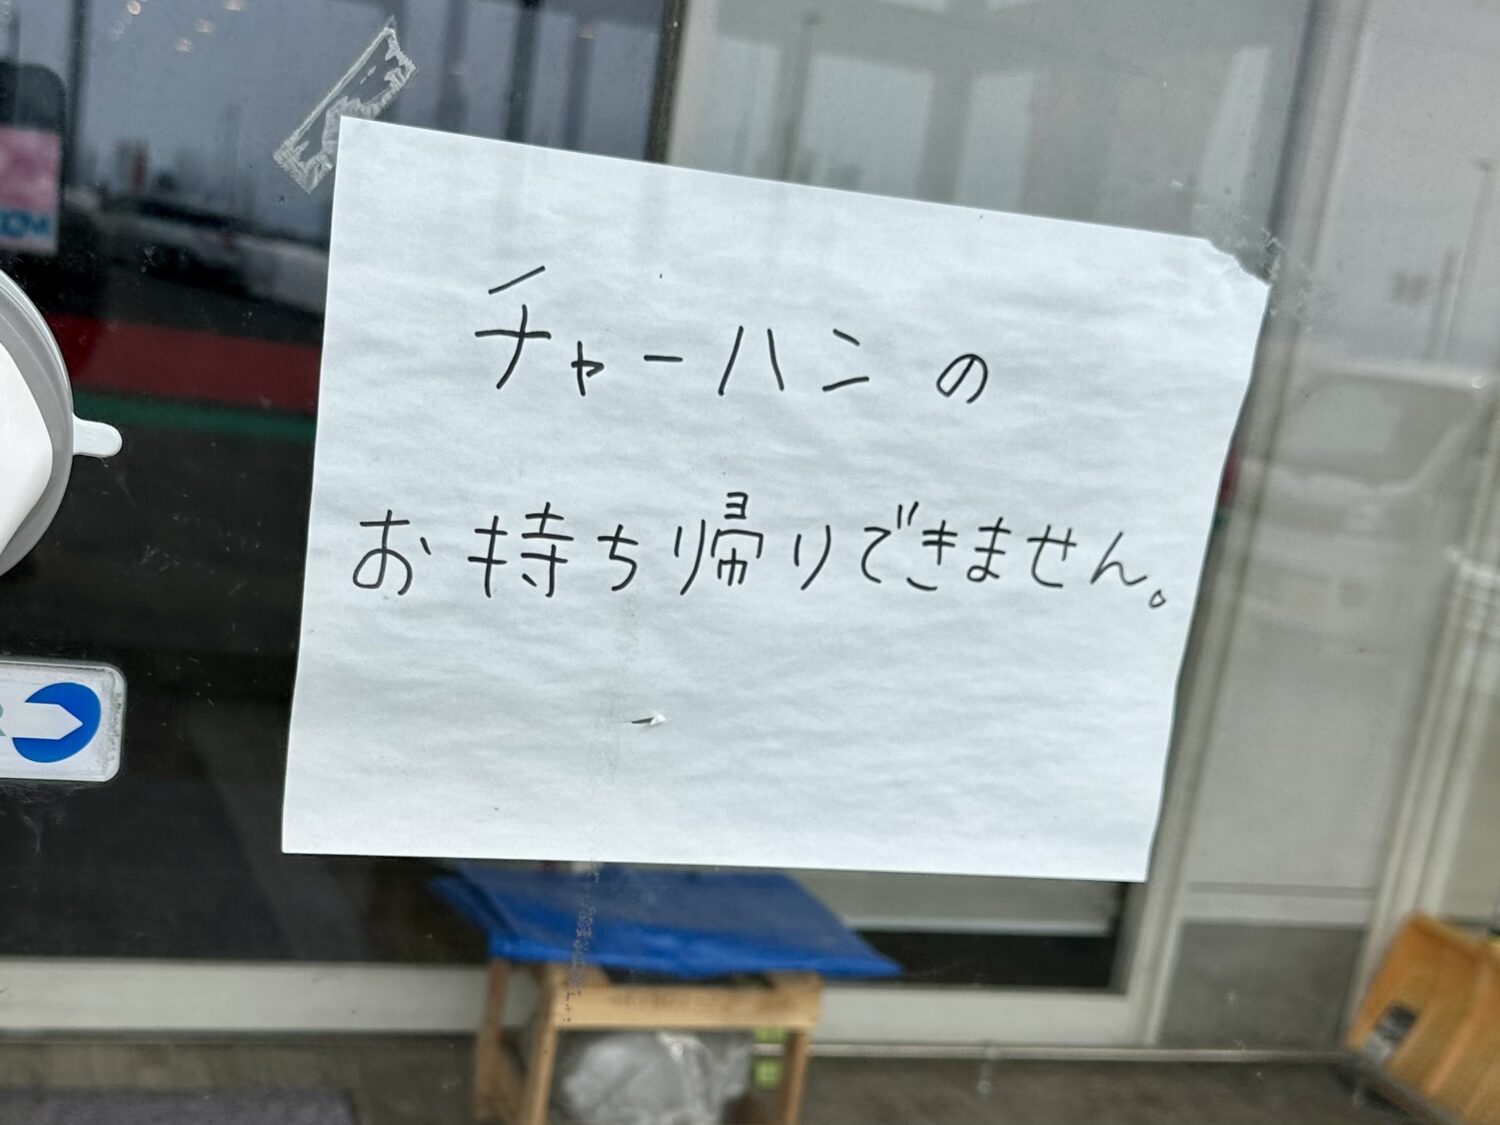 チャーハンの
お持ち帰りできません。